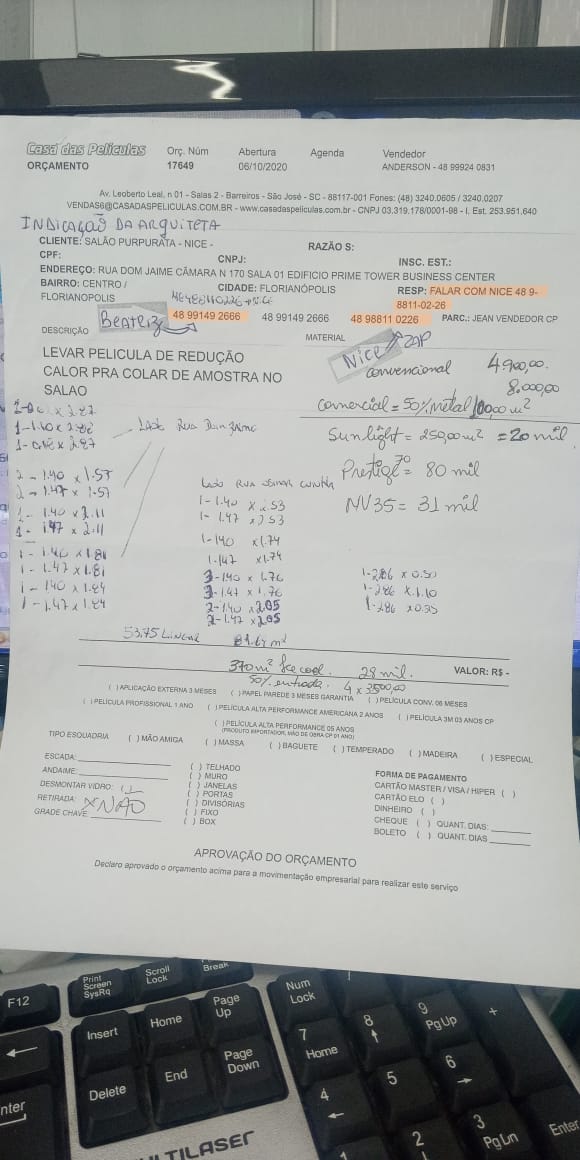 Casa das Películas Orç. Núm Abertura Agenda Vendedor
ORÇAMENTO 17649 06/10/2020 ANDERSON - 48 99924 0831
Av. Leoberto Leal, n 01 - Salas 2 - Barreiros - São José - SC - 88117-001 Fones: (48) 3240.0605 / 3240.0207
VENDAS6@CASADASPELICULAS.COM.BR - www.casadaspeliculas.com.br - CNPJ 03.319.178/0001-98 - I. Est. 253.951.640
INDICAÇÃO DA ARQUITETA
CLIENTE: SALÃO PURPURATA - NICE - RAZÃO S:
CPF: CNPJ: INSC. EST.:
ENDEREÇO: RUA DOM JAIME CÂMARA N 170 SALA 01 EDIFICIO PRIME TOWER BUSINESS CENTER
BAIRRO: CENTRO / CIDADE: FLORIANÓPOLIS RESP: FALAR COM NICE 48 9-
FLORIANOPOLIS 8811-02-26
Beatriz 48 99149 2666 48 99149 2666 48 98811 0226 PARC.: JEAN VENDEDOR CP
DESCRIÇÃO MATERIAL
Nice ZAP
LEVAR PELICULA DE REDUÇÃO
CALOR PRA COLAR DE AMOSTRA NO
SALAO
convencional 4.900,00.
8.000,00
comercial = 50% metal 100,00 m²
Sunlight = 250,00 m² = 20 mil
Prestige 70 = 80 mil
NV35 = 31 mil
1-1.40 x 2.86
2-1.40 x 1.57
2-1.47 x 1.57
1-1.40 x 2.11
1-147 x 2.11
1-1.40 x 1.81
1-1.47 x 1.81
1-140 x 1.84
1-1.47 x 1.84
LADO RUA
1-1.40 x 2.53
1-1.47 x 253
1-140 x 1.74
1-147 x 1.74
3-1.40 x 1.76
3-1.47 x 1.76
2-1.40 x 2.05
2-1.47 x 2.05
1-286 x 0.50
1-286 x 1.10
1-286 x 0.35
53.75 Linear 81.67 m²
370 m² 28 mil. VALOR: R$ -
50% entrada. 4 x 3500,00
( ) APLICAÇÃO EXTERNA 3 MESES ( ) PAPEL PAREDE 3 MESES GARANTIA ( ) PELÍCULA CONV. 06 MESES
( ) PELÍCULA PROFISSIONAL 1 ANO ( ) PELÍCULA ALTA PERFORMANCE AMERICANA 2 ANOS ( ) PELÍCULA 3M 03 ANOS CP
( ) PELÍCULA ALTA PERFORMANCE 05 ANOS
(PRODUTO IMPORTADOR, MÃO DE OBRA CP 01 ANO)
TIPO ESQUADRIA ( ) MÃO AMIGA ( ) MASSA ( ) BAGUETE ( ) TEMPERADO ( ) MADEIRA ( ) ESPECIAL
ESCADA:
ANDAIME:
DESMONTAR VIDRO:
RETIRADA: X NÃO
GRADE CHAVE:
( ) TELHADO
( ) MURO
( ) JANELAS
( ) PORTAS
( ) DIVISÓRIAS
( ) FIXO
( ) BOX
FORMA DE PAGAMENTO
CARTÃO MASTER / VISA / HIPER ( )
CARTÃO ELO ( )
DINHEIRO ( )
CHEQUE ( ) QUANT. DIAS:
BOLETO ( ) QUANT. DIAS
APROVAÇÃO DO ORÇAMENTO
Declaro aprovado o orçamento acima para a movimentação empresarial para realizar este serviço
F12 Print Screen SysRq Scroll Lock Break
Insert Home Page Up Num Lock
Delete End Page Down
7 Home 8 9 PgUp +
4 5 6
1 2 3 PgLn Enter
nter
ULTILASER